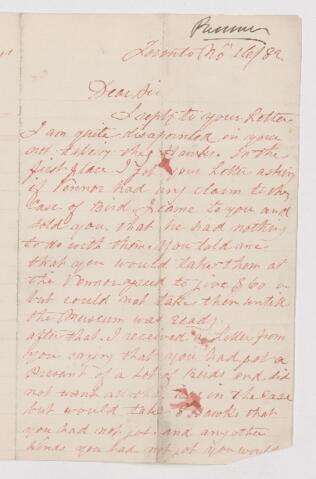 Toronto Nov 16/82
Dear Sir
In reply to your Letter
I am quite disapointed in your
not takeing the Hawks. In the
first place I got your Letter asking
if Vennor had any claim to the
Case of Birds, I came to you and
told you that he had nothing
to do with them. You told me
that you would take them at
the Vennor agreed to give $60
but could not take them untill
the Museum was ready.
after that I received a Letter from
you saying that you had got a
Present of a Lot of Birds and did
not want all the in the Case
but would take Hawks that
you had not got and any other
kinds you had not got you would